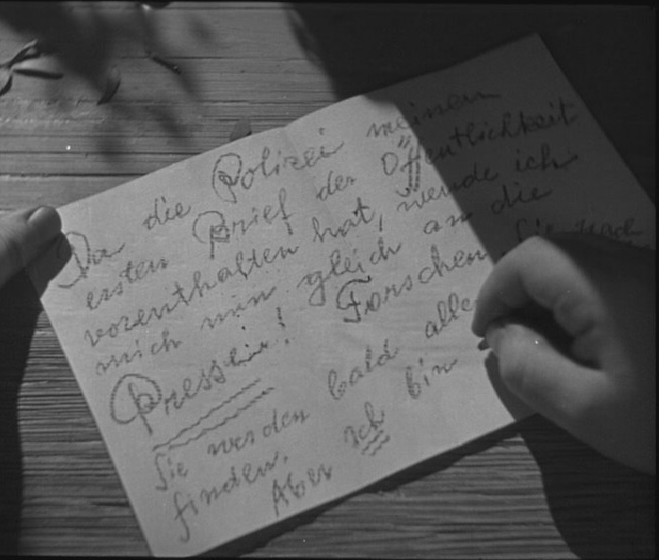 Da die Polizei meinen
ersten Brief der Öffentlichkeit
vorenthalten hat, wende ich
mich nun gleich an die
Presse! Forschen Sie nach
Sie werden bald alles
finden.
Aber ich bin